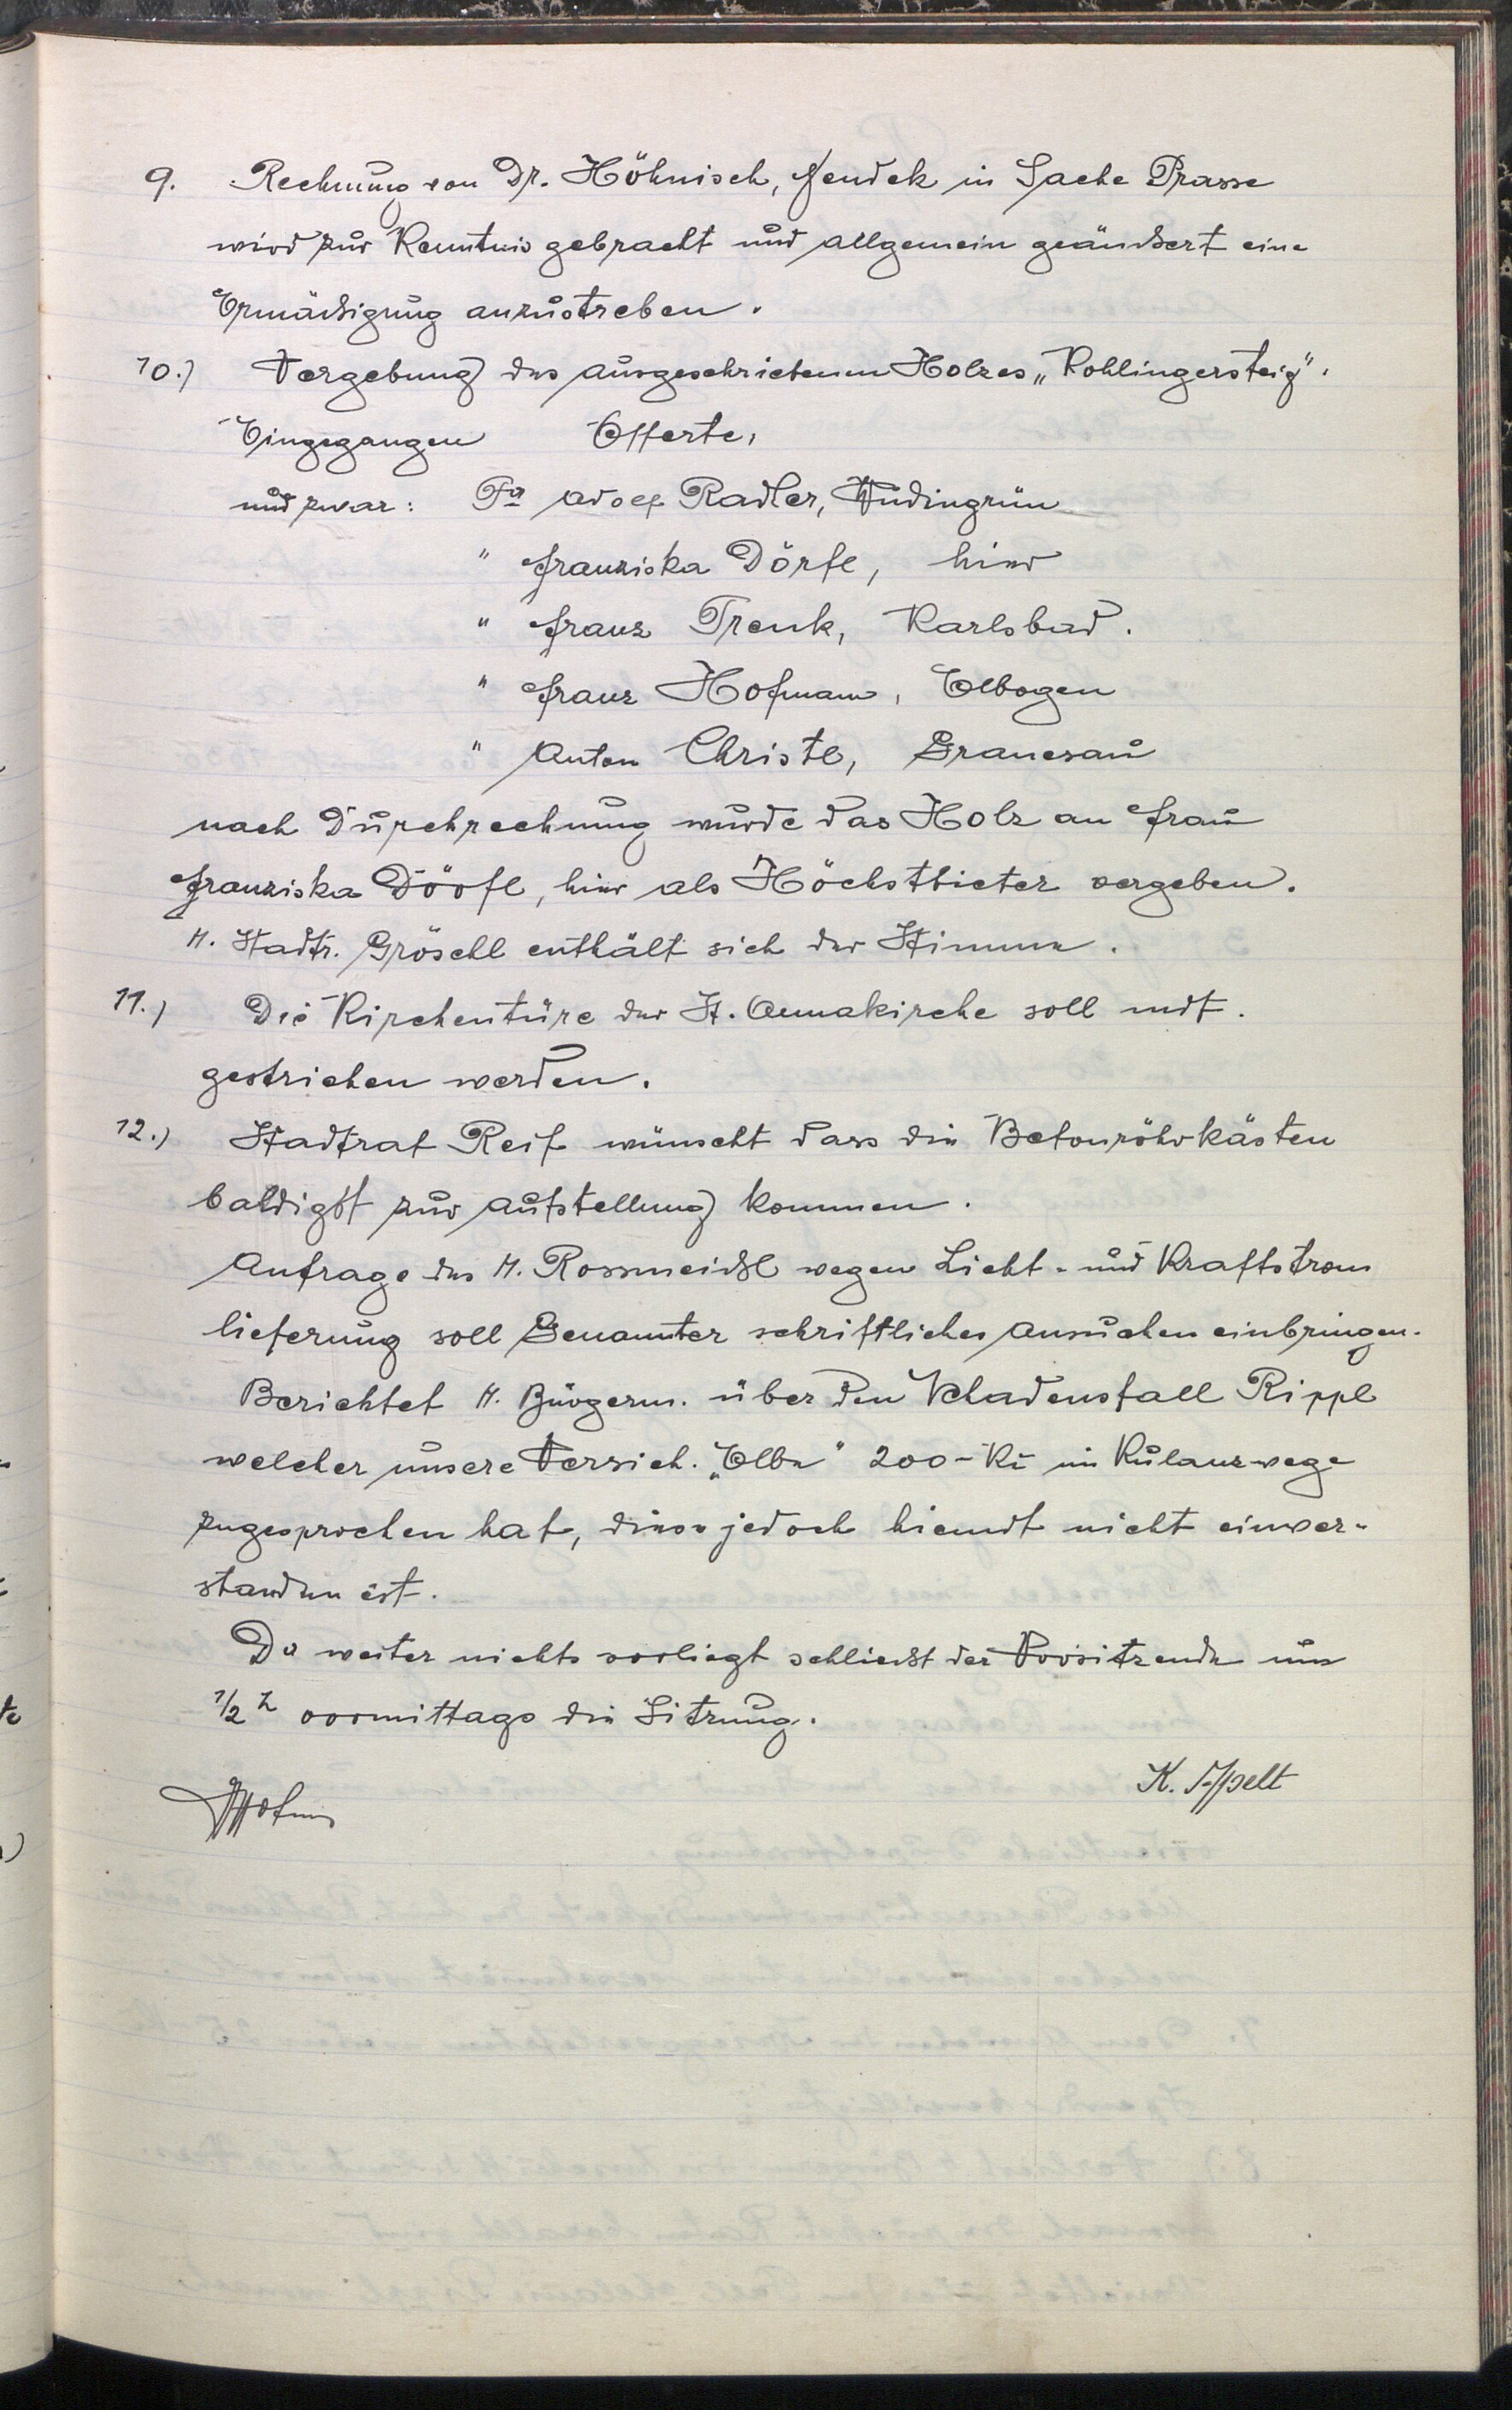 9. Rechnung von Dr. Höhnisch, Neudek in Sache Prasse
wird zur Kenntnis gebracht und allgemein geäußert eine
Ermäßigung anzustreben.
10.) Vergebung des ausgeschriebenen Holzes „Rohlingersteig".
Eingegangen Offerte,
und zwar: Fa Adolf Radler, Wudingrün
" Franziska Dörfl, hier
" Franz Trenk, Karlsbad.
" Franz Hofmann, Elbogen
" Anton Christl, Granesau
nach Durchrechnung wurde das Holz an Frau
Franziska Dörfl, hier als Höchstbieter vergeben.
H. Stadtr. Gröschl enthält sich der Stimme.
11.) Die Kirchentüre der St. Annakirche soll
gestrichen werden.
12.) Stadtrat Reif wünscht dass die Betonröhrkästen
baldigst zur Aufstellung kommen.
Anfrage des H. Rossmeißl wegen Licht- und Kraftstrom
lieferung soll Genannter schriftliches Ansuchen einbringen.
Berichtet H. Bürgerm. über den Schadensfall Rippl
welcher unsere Versich. „Elbe" 200-Kč im Kulanzwege
zugesprochen hat, dieser jedoch hiemit nicht einver-
standen ist.
Da weiter nichts vorliegt schließt der Vorsitzende um
1/2 h vormittags die Sitzung.
K. Appelt